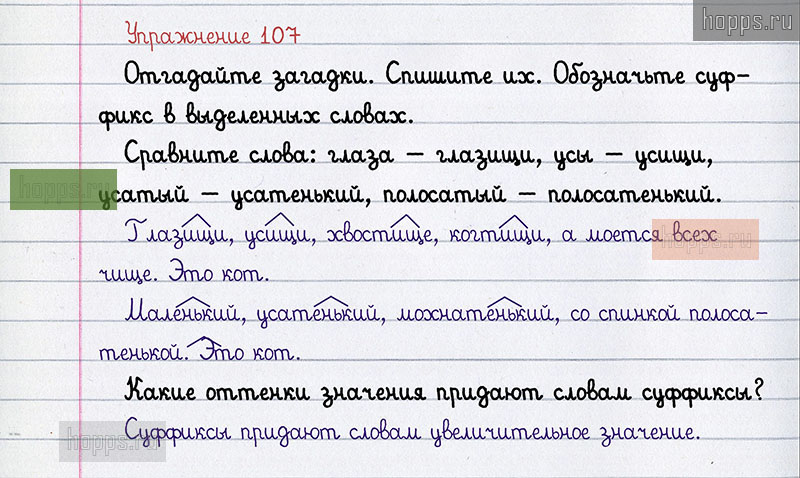 hopps.ru
Упражнение 107
Отгадайте загадки. Спишите их. Обозначьте суф-
фикс в выделенных словах.
Сравните слова: глаза – глазищи, усы – усищи,
hopps.ru
усатый – усатенький, полосатый – полосатенький.
Глазищи, усищи, хвостище, когтищи, а моется всех
hopps.ru
чище. Это кот.
Маленький, усатенький, мохнатенький, со спинкой полоса-
тенькой. Это кот.
Какие оттенки значения придают словам суффиксы?
Суффиксы придают словам увеличительное значение.
hopps.ru